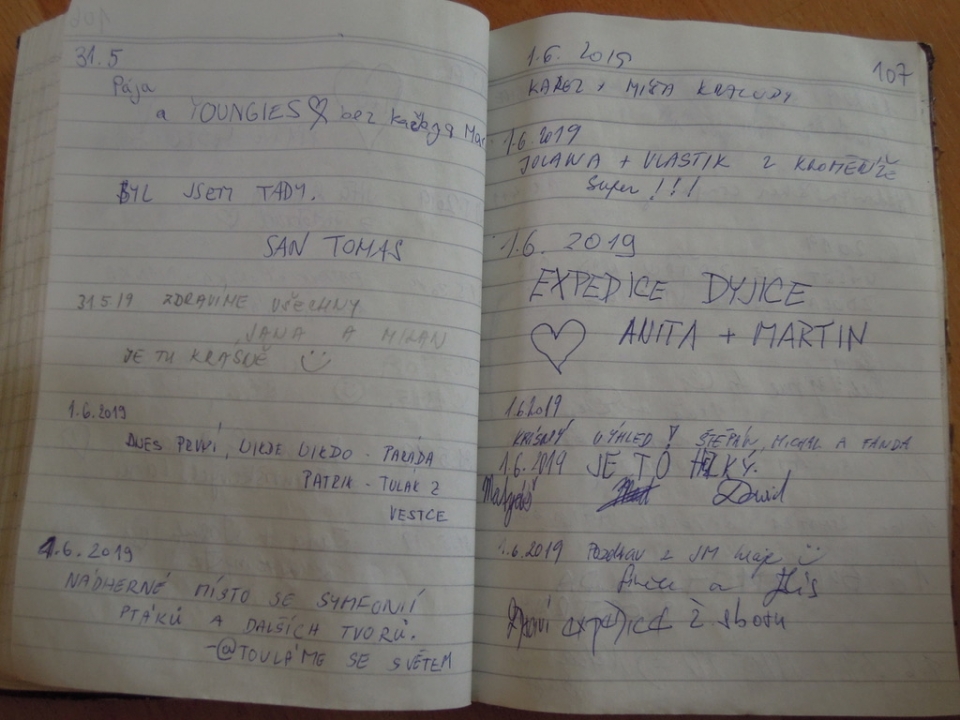 31.5
Pája
a YOUNGIES bez
BYL JSEM TADY.
SAN TOMAS
31.5.19 ZDRAVÍME VŠECHNY
JANA A MILAN
JE TU KRÁSNĚ
1.6.2019
DNES PRVNÍ, NIKDE NIKDO - PARÁDA
PATRIK - TULÁK Z
VESTCE
1.6.2019
NÁDHERNÉ MÍSTO SE SYMFONIÍ
PTÁKŮ A DALŠÍCH TVORŮ.
-@TOULÁME SE SVĚTEM
107
1.6. 2019
+ MÍŠA
1.6.2019
JOLANA + VLASTIK Z KROMĚŘÍŽE
Super !!!
1.6. 2019
EXPEDICE DYJICE
ANITA + MARTIN
1.6.2019
KRÁSNÝ VÝHLED! ŠTĚPÁN, MICHAL A FANDA
1.6.2019 JE TO HEZKÝ.
David
1.6.2019 Pozdrav z JM kraje
a
expedice